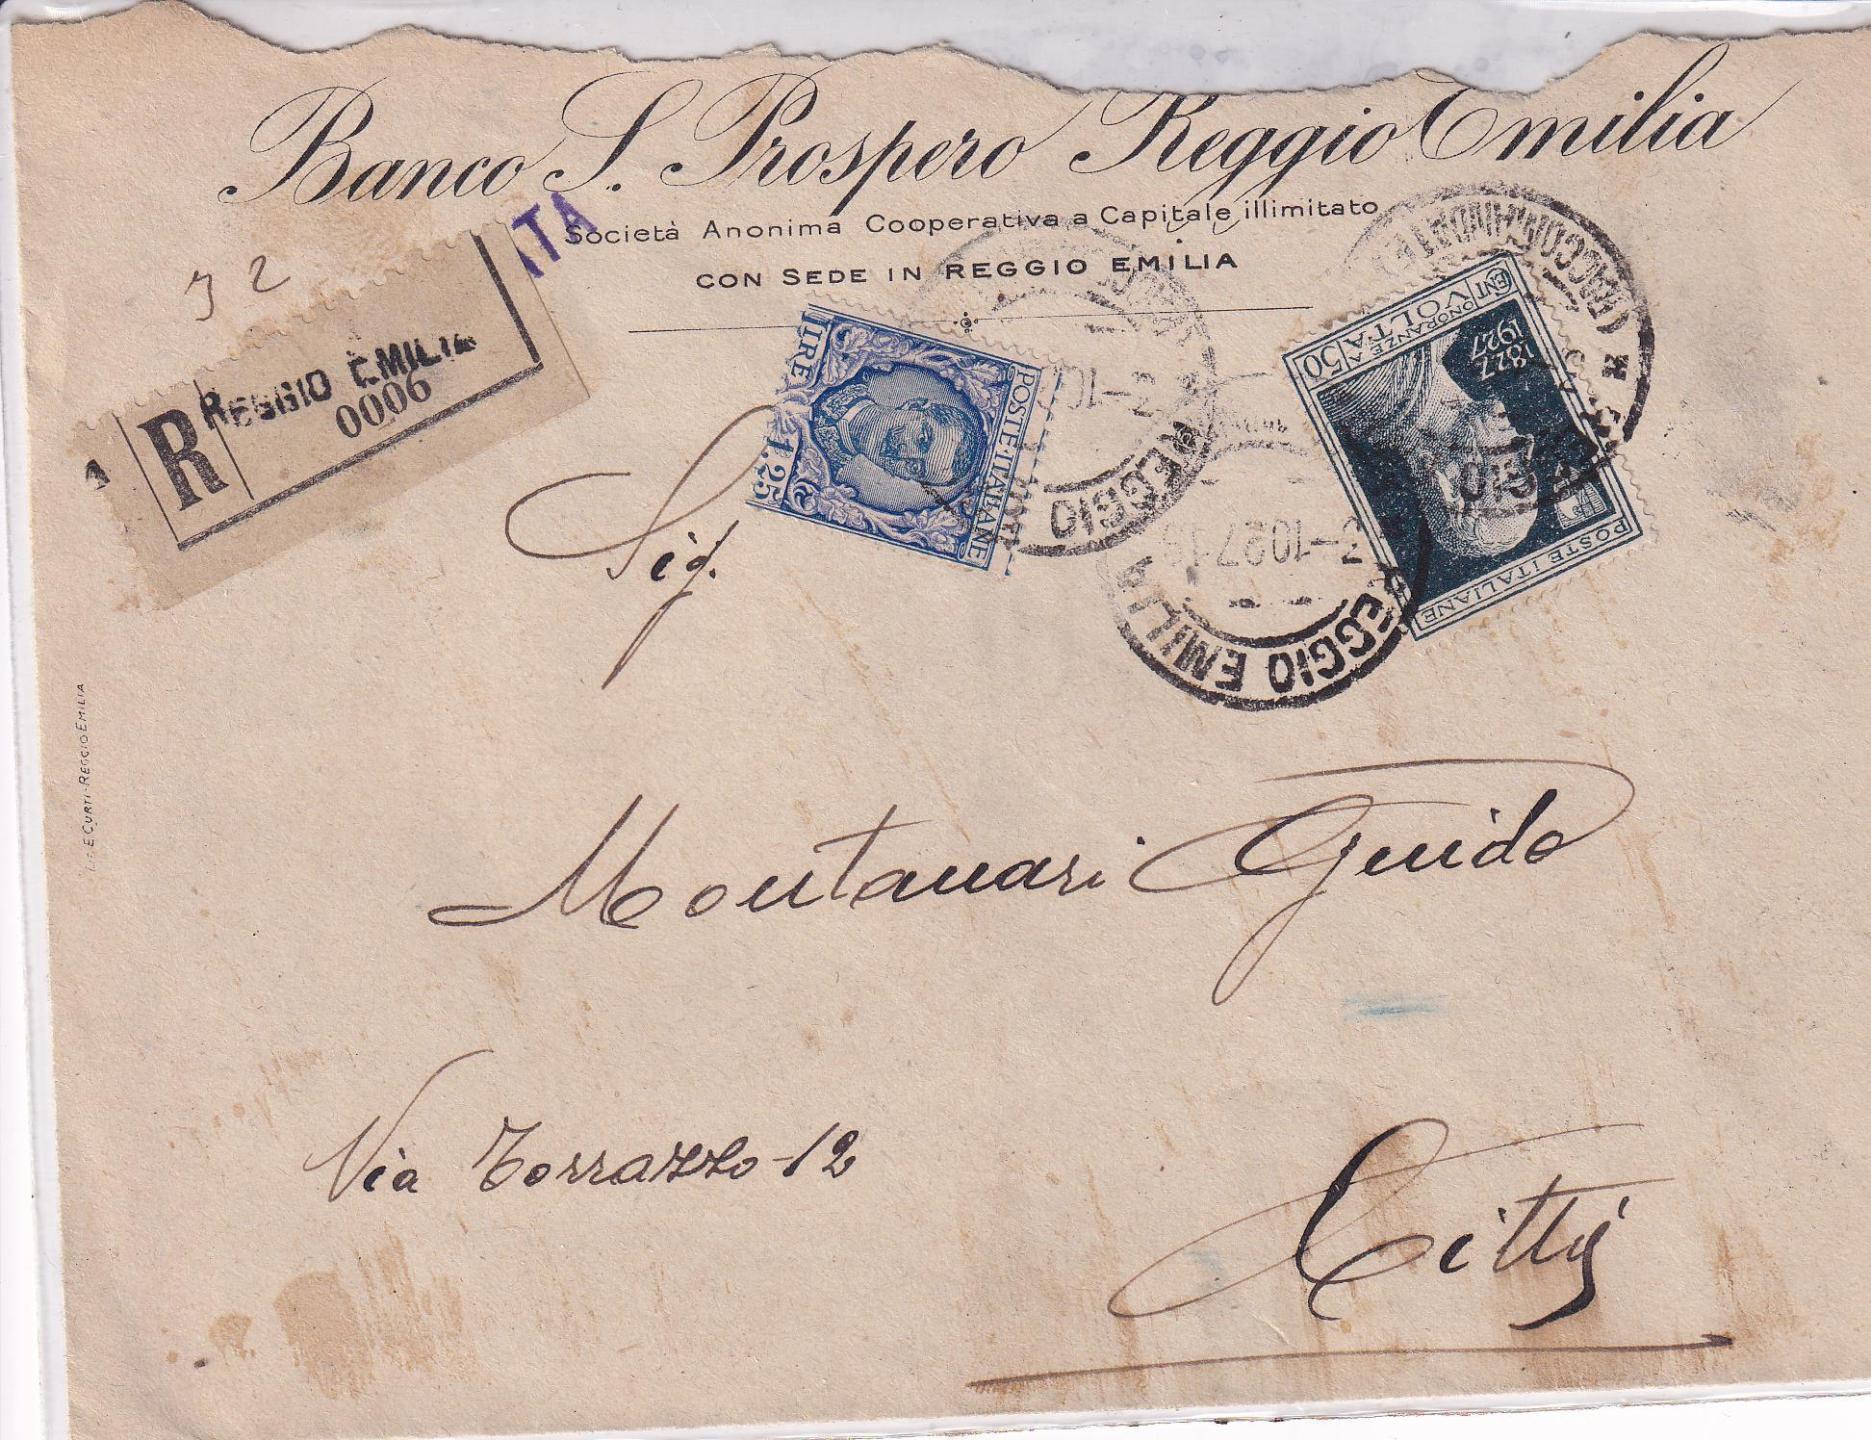 Banco S. Prospero Reggio Emilia
Società Anonima Cooperativa a Capitale illimitato
CON SEDE IN REGGIO EMILIA
ITA
32
R
REGGIO EMILIA
0006
LIRE 1.25
POSTE·ITALIANE
50 CENT
ONORANZE A VOLTA
1827
1927
POSTE ITALIANE
REGGIO
2-10
(RACCOMANDATE)
REGGIO
2-10 27 19
REGGIO EMILIA
Sig.
Montanari Guido
Via Torrazzo-12
Città
E CURTI-REGGIO EMILIA